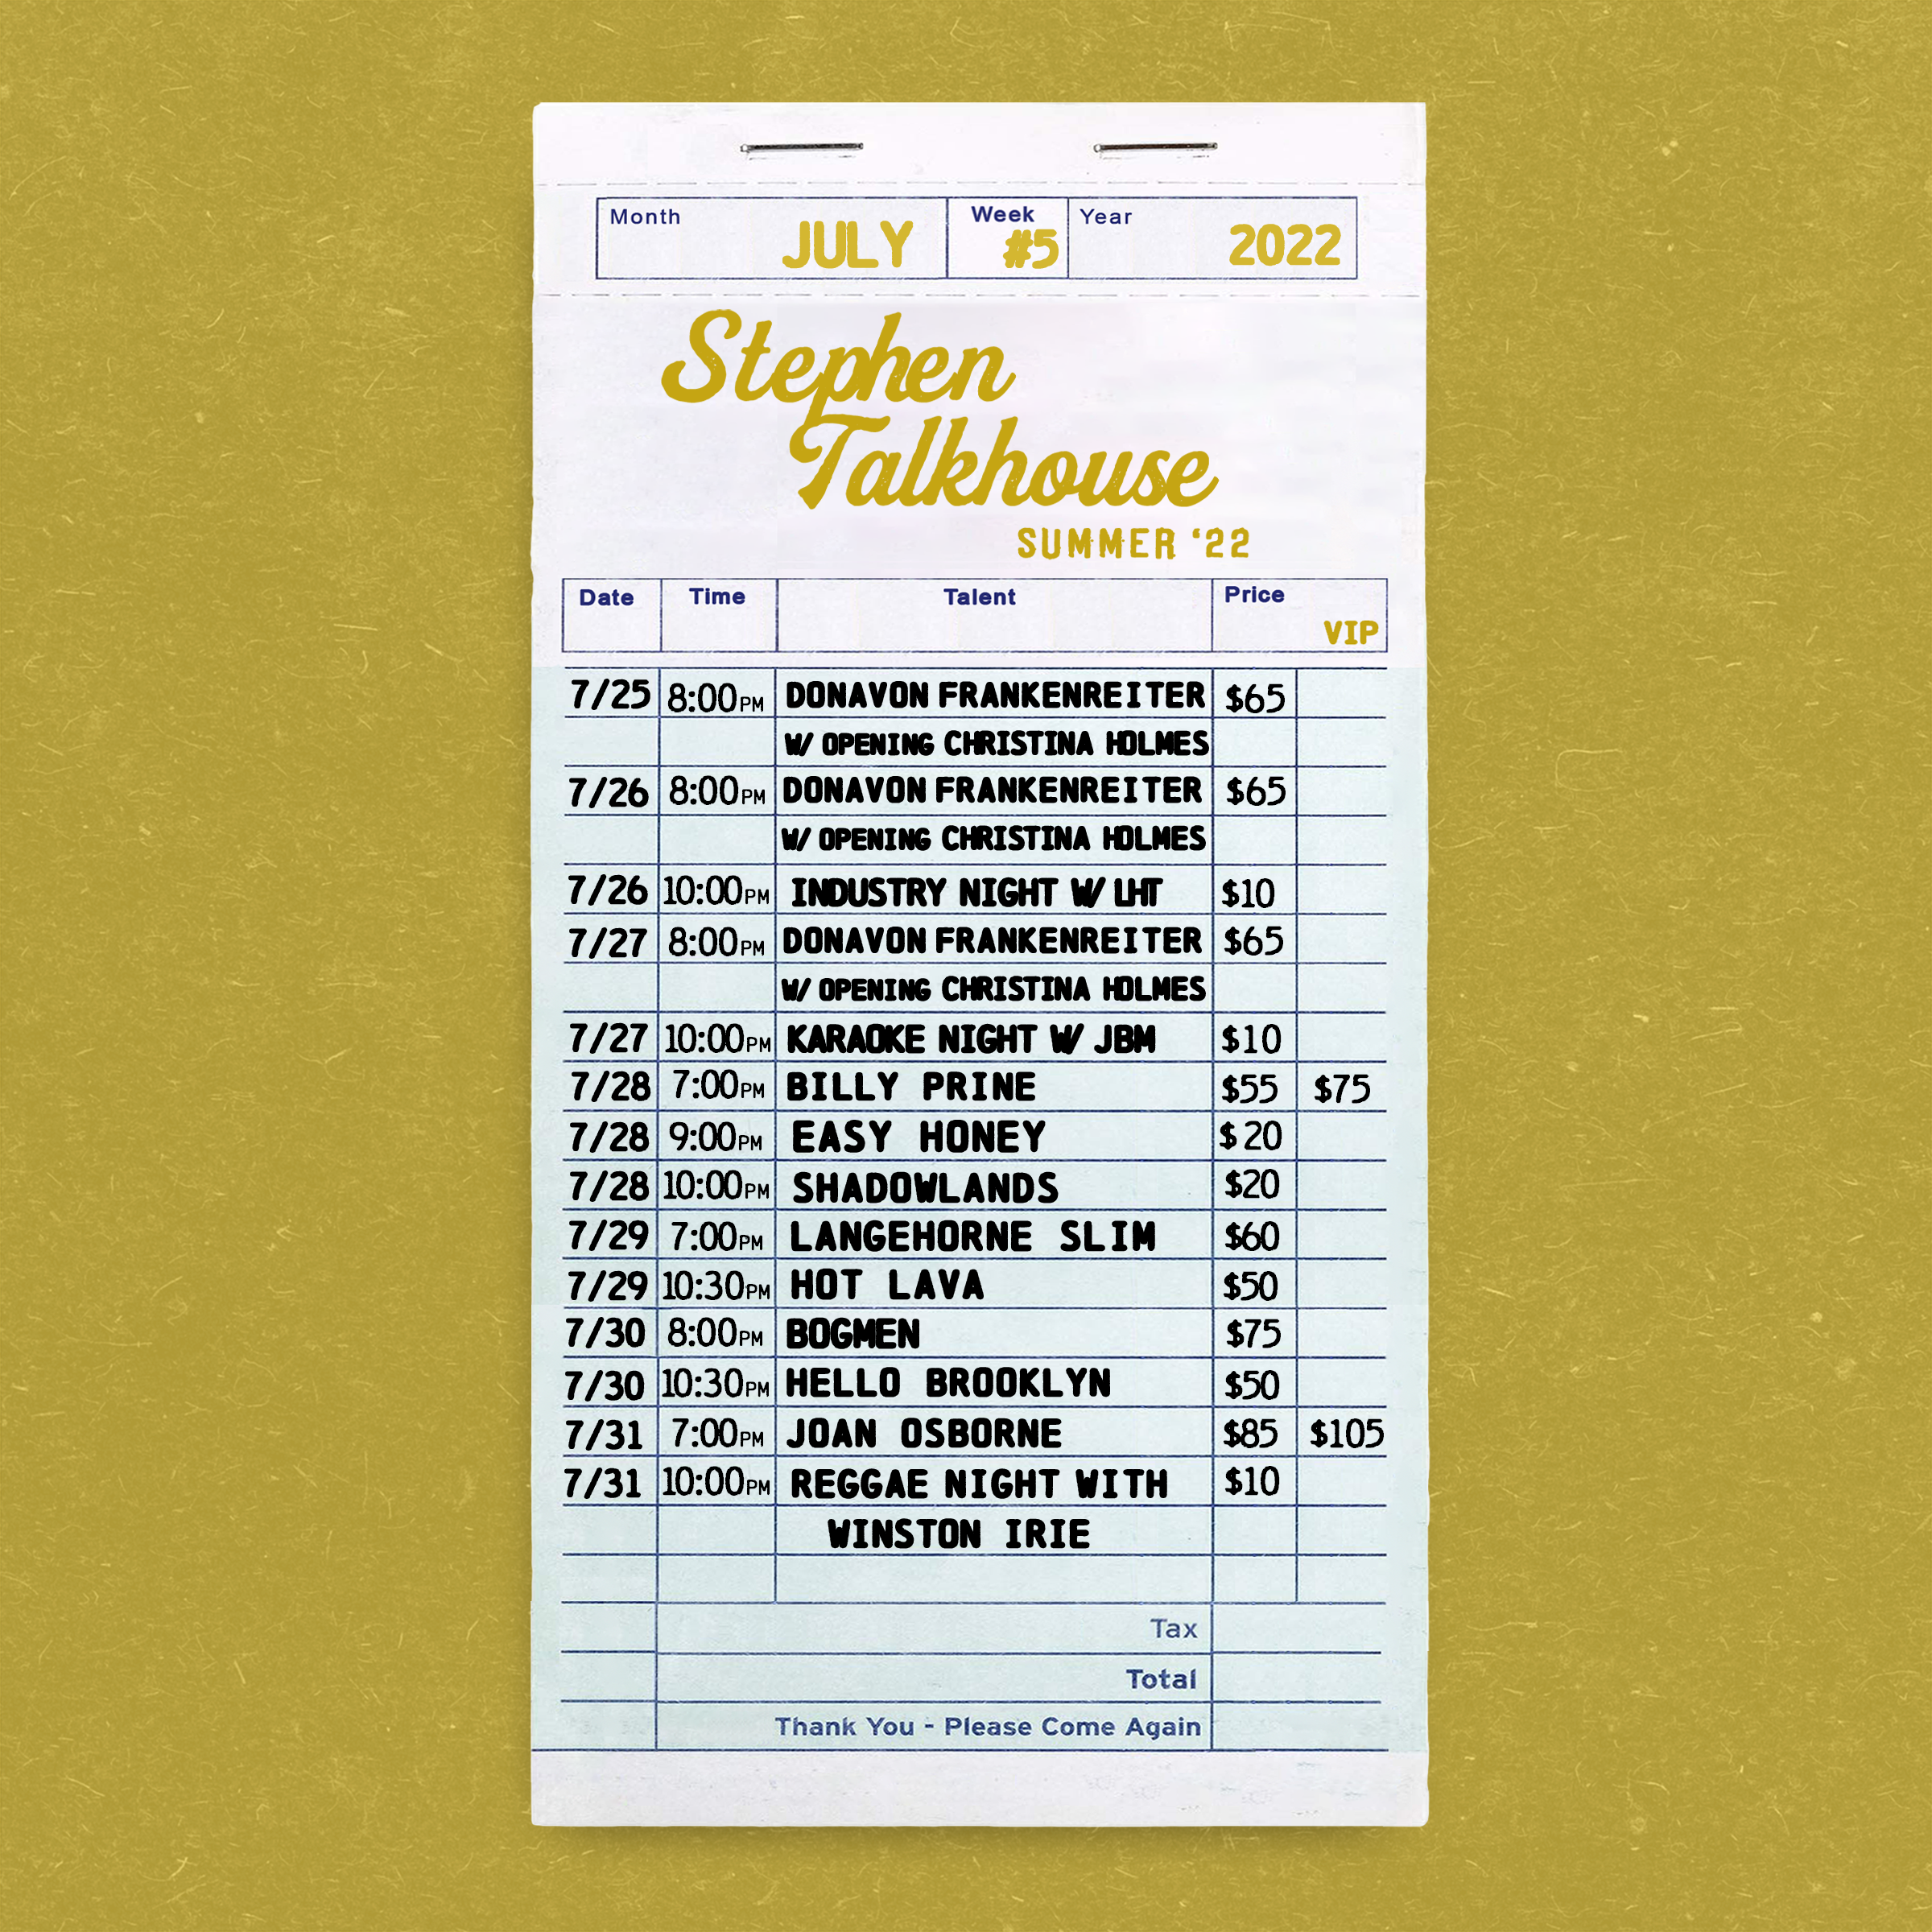 Month JULY Week #5 Year 2022
Stephen
Talkhouse
SUMMER '22
Date Time Talent Price
VIP
7/25 8:00PM DONAVON FRANKENREITER $65
W/ OPENING CHRISTINA HOLMES
7/26 8:00PM DONAVON FRANKENREITER $65
W/ OPENING CHRISTINA HOLMES
7/26 10:00PM INDUSTRY NIGHT W/ LHT $10
7/27 8:00PM DONAVON FRANKENREITER $65
W/ OPENING CHRISTINA HOLMES
7/27 10:00PM KARAOKE NIGHT W/ JBM $10
7/28 7:00PM BILLY PRINE $55 $75
7/28 9:00PM EASY HONEY $20
7/28 10:00PM SHADOWLANDS $20
7/29 7:00PM LANGEHORNE SLIM $60
7/29 10:30PM HOT LAVA $50
7/30 8:00PM BOGMEN $75
7/30 10:30PM HELLO BROOKLYN $50
7/31 7:00PM JOAN OSBORNE $85 $105
7/31 10:00PM REGGAE NIGHT WITH $10
WINSTON IRIE
Tax
Total
Thank You - Please Come Again